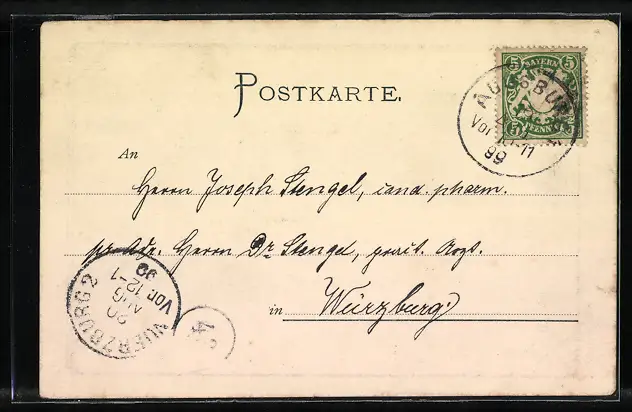 POSTKARTE.
5 BAYERN 5
AUGSBURG
Vor. 10-11
99
5 PFENNIG 5
An
Herrn Joseph Stengel, cand. pharm.
pr. Adr. Herrn Dr Stengel, prakt. Arzt.
in Würzburg.
WUERZBURG 2
20
AUG
VOR. 12-1
99